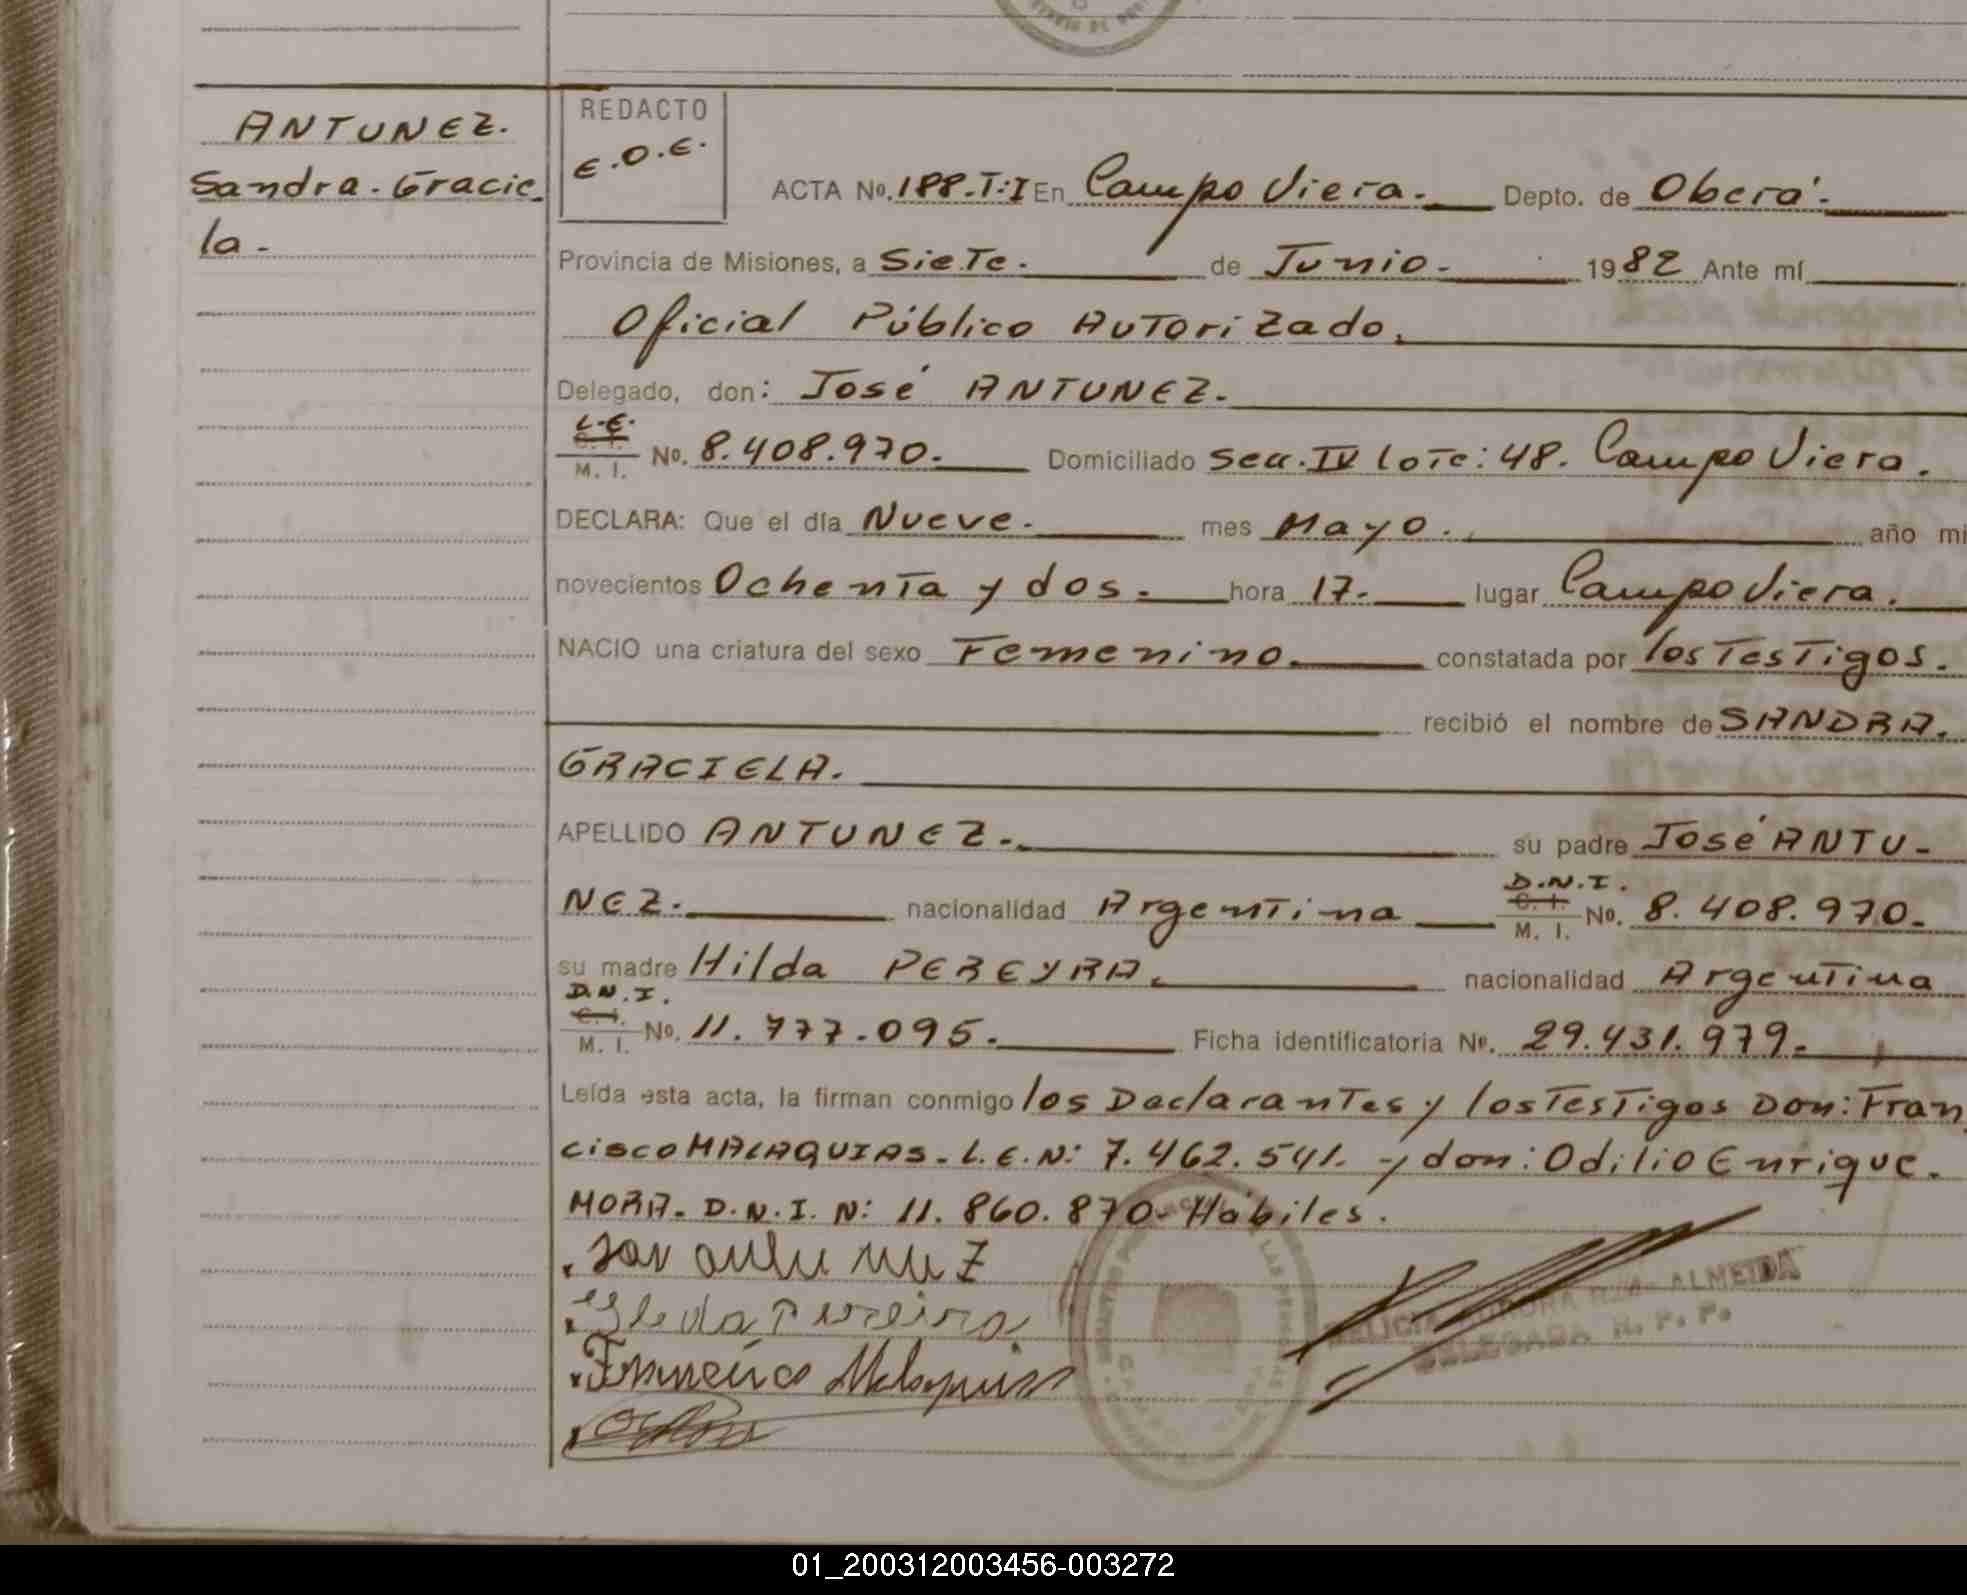 ANTUNEZ.
Sandra. Gracie_
la.-
REDACTO
E.O.E.
ACTA No. 188.T:I En Campo Viera. Depto. de Oberá.
Provincia de Misiones, a Siete. de Junio. 1982 Ante mí
Oficial Público Autorizado.
Delegado, don: José ANTUNEZ.
L.E.
C. I.
M. I. No. 8.408.970. Domiciliado Secc. IV Lote: 48. Campo Viera.
DECLARA: Que el día Nueve. mes Mayo. año mi
novecientos Ochenta y dos. hora 17. lugar Campo Viera.
NACIO una criatura del sexo Femenino. constatada por los Testigos.
recibió el nombre de SANDRA.
GRACIELA.
APELLIDO ANTUNEZ. su padre José ANTU-
NEZ. nacionalidad Argentina D.N.I. C. I. M. I. No. 8.408.970.
su madre Hilda PEREYRA. nacionalidad Argentina
D.N.I.
C. I.
M. I. No. 11.777.095. Ficha identificatoria No. 29.431.979.
Leída esta acta, la firman conmigo los Declarantes y los Testigos Don: Fran
cisco MALAQUIAS. L.E.N: 7.462.541. y don: Odilio Enrique.
MORA. D.N.I. N: 11.860.870- Hábiles.
Francisco Malaquias
ALMEIDA
DELEGADA R. P. P.
01_200312003456-003272